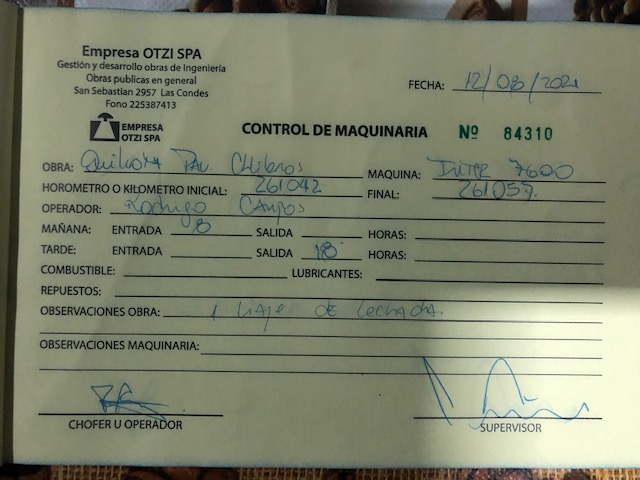 Empresa OTZI SPA
Gestión y desarrollo obras de Ingeniería
Obras publicas en general
San Sebastian 2957 Las Condes
Fono 225387413
EMPRESA
OTZI SPA
FECHA: 12/08/2021
CONTROL DE MAQUINARIA Nº 84310
OBRA: Quilicura Pav. Chilenos MAQUINA: Inter 7600
HOROMETRO O KILOMETRO INICIAL: 261042 FINAL: 261057.
OPERADOR: Rodrigo Campos
MAÑANA: ENTRADA 8 SALIDA HORAS:
TARDE: ENTRADA SALIDA 18 HORAS:
COMBUSTIBLE: LUBRICANTES:
REPUESTOS:
OBSERVACIONES OBRA: 1 viaje de lechada.
OBSERVACIONES MAQUINARIA:
CHOFER U OPERADOR SUPERVISOR